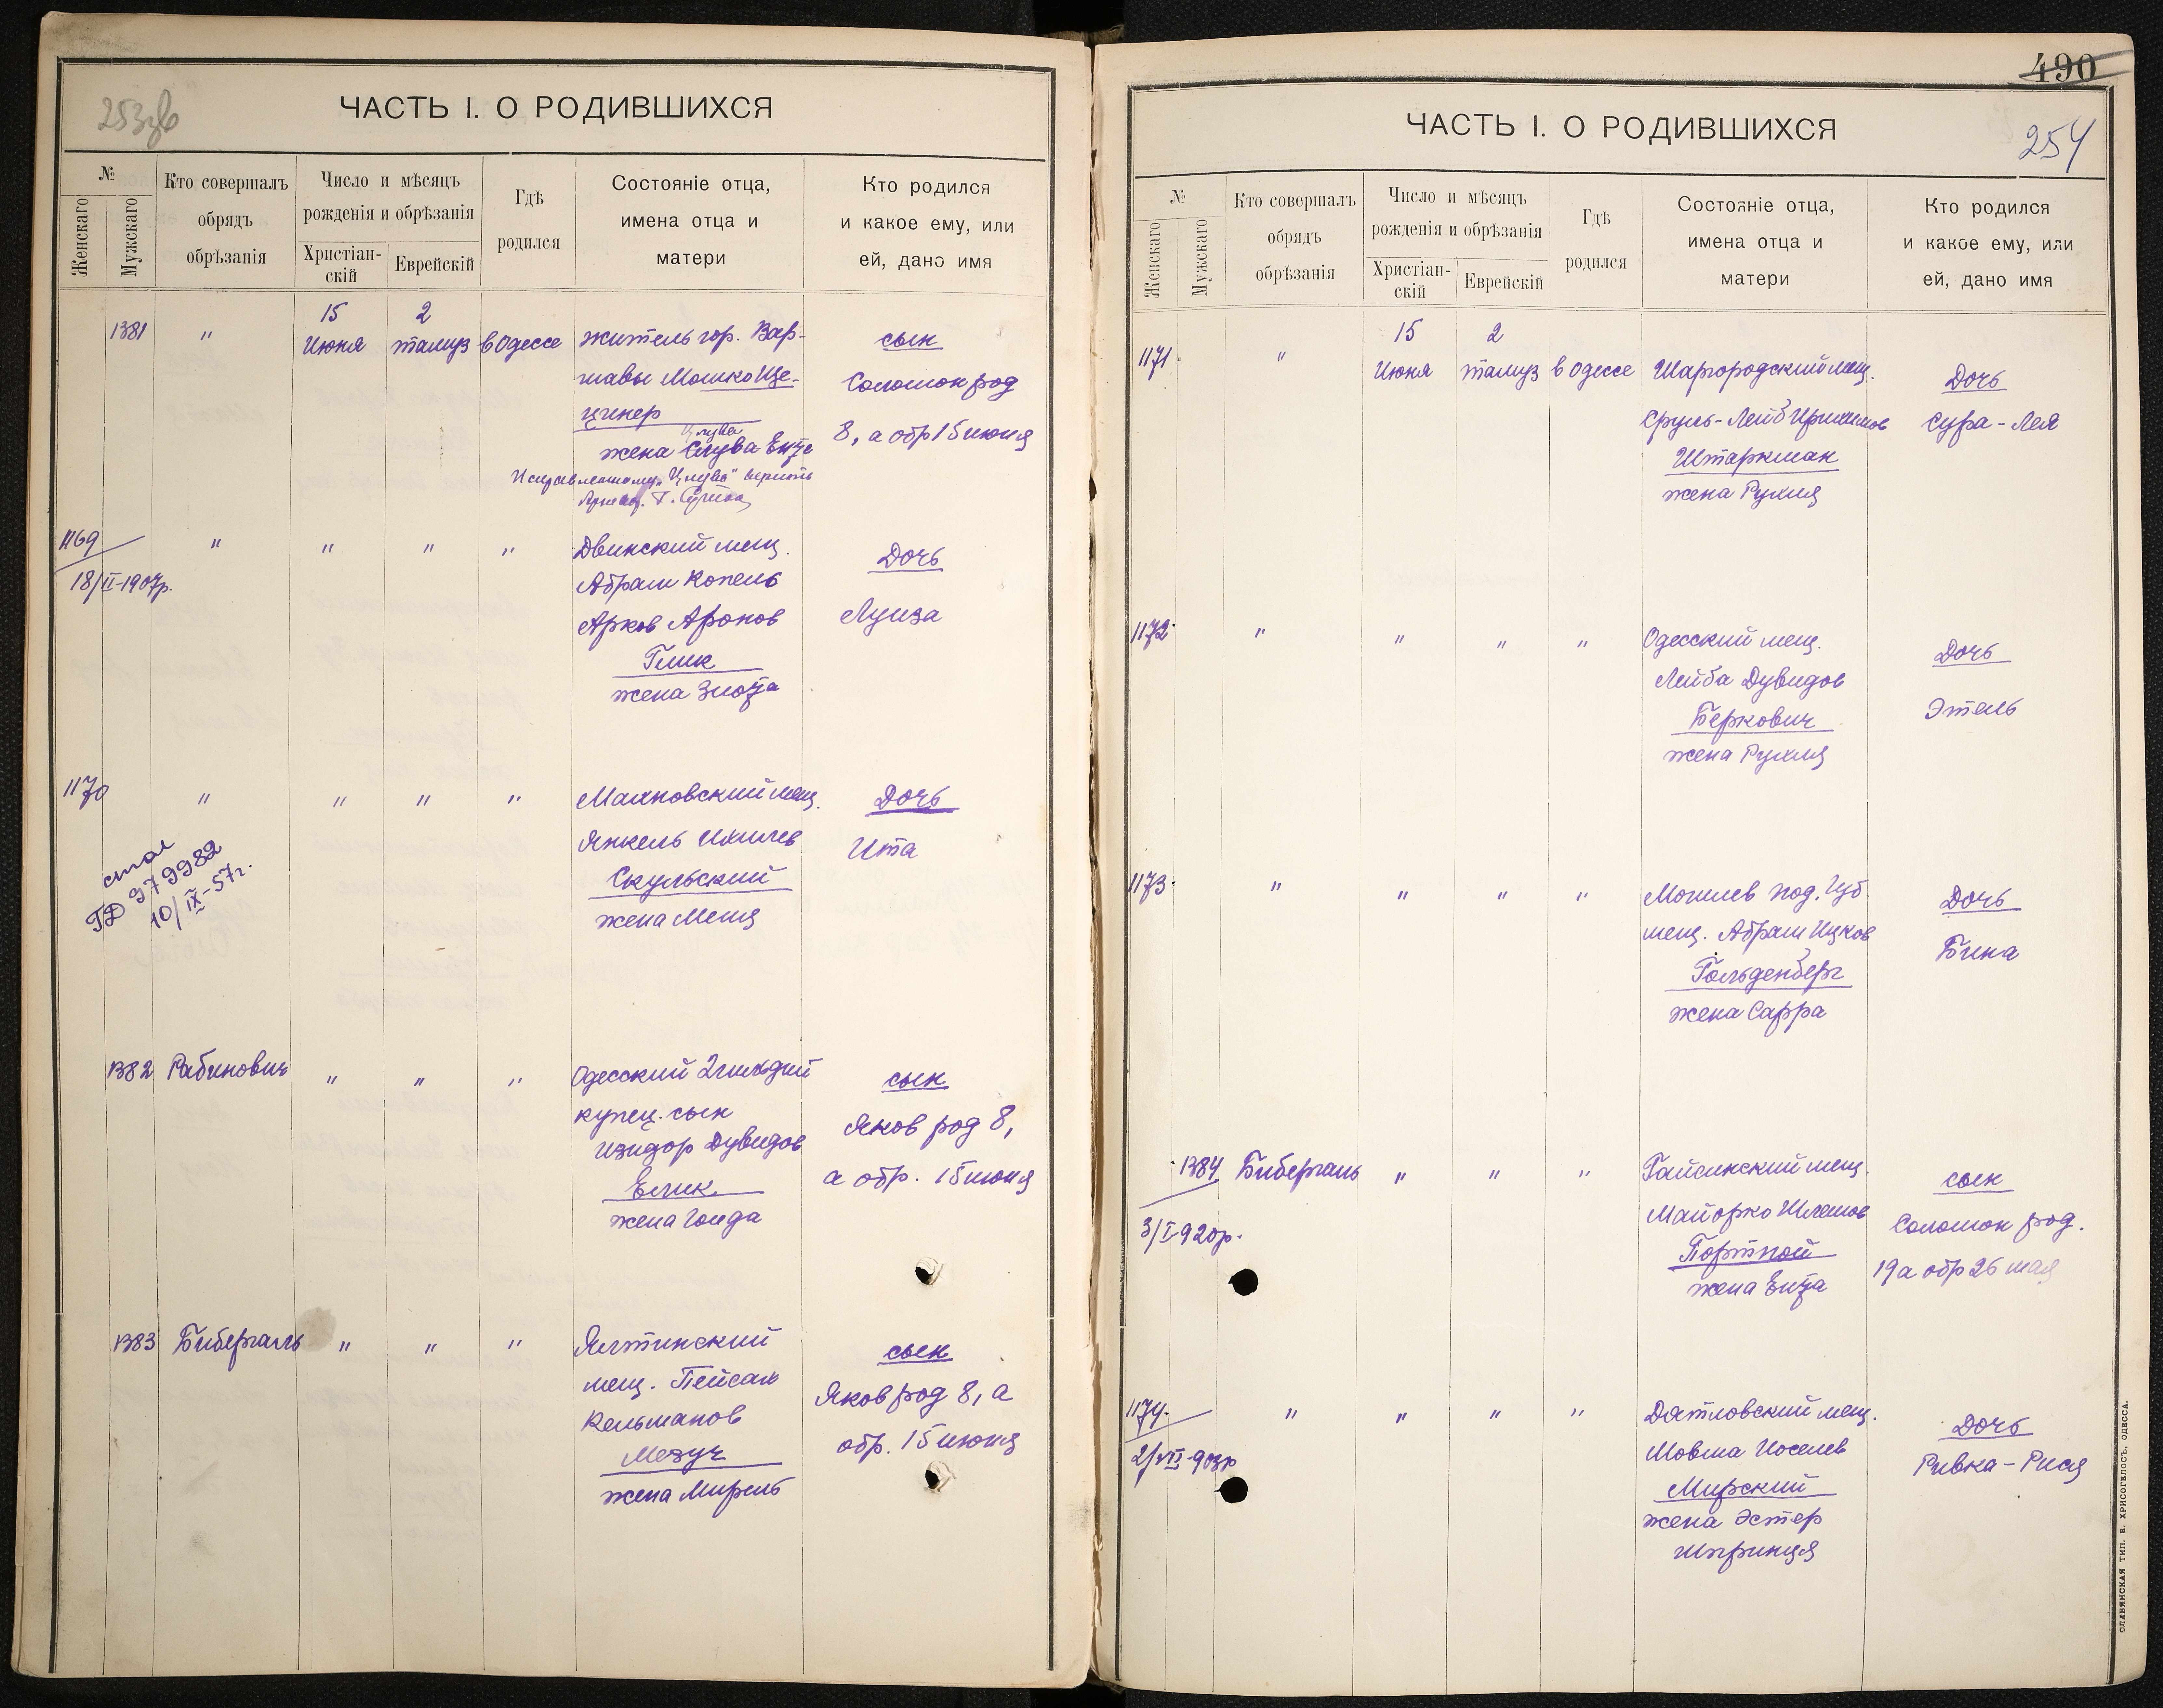 253об
ЧАСТЬ I. О РОДИВШИХСЯ
№
Женскаго
Мужскаго
Кто совершалъ
обрядъ
обрѣзанія
Число и мѣсяцъ
рожденія и обрѣзанія
Христіан-
скій
Еврейскій
Гдѣ
родился
Состояніе отца,
имена отца и
матери
Кто родился
и какое ему, или
ей, дано имя
15 2
1381 " Июня тамуз в Одессе житель гор. Вар-
шавы Мошко Це-
цинер
жена Слува Ентя
Исправленному верить
сын
Соломон род
8, а обр 15 июня
1169 " " " " Двинский мещ.
18/II-1907р.
Абрам Копель
Арков Аронов
Глик
жена Злота
Дочь
Луиза
1170 " " " " Махновский мещ.
Янкель Ихилев
Скульский
жена Меня
Дочь
Ита
979982
10/IX-57г.
1382 Рабинович " " " Одесский 2 гильдии
купец. сын
Изидор Дувидов
Елик
жена Гольда
сын
Яков род 8,
а обр. 15 июня
1383 Бибергаль " " " Ялтинский
мещ. Пейсах
Кельманов
Мезуч
жена Мирель
сын
Яков род 8, а
обр. 15 июня
490
ЧАСТЬ I. О РОДИВШИХСЯ
254
№
Женскаго
Мужскаго
Кто совершалъ
обрядъ
обрѣзанія
Число и мѣсяцъ
рожденія и обрѣзанія
Христіан-
скій
Еврейскій
Гдѣ
родился
Состояніе отца,
имена отца и
матери
Кто родился
и какое ему, или
ей, дано имя
15 2
1171 " Июня тамуз в Одессе Шаргородский мещ.
Сруль-Лейб
Штаркман
жена Рухля
Дочь
Сура-Лея
1172 " " " " Одесский мещ.
Лейба Дувидов
Беркович
жена Рухля
Дочь
Этель
1173 " " " " Могилев под. губ.
мещ. Абрам Ицков
Гольденберг
жена Сарра
Дочь
Бина
1384 Бибергаль " " " Гайсинский мещ.
3/I-920р.
Майорко Шлемов
Портной
жена Ентя
сын
Соломон род.
19 а обр 26 мая
1174 " " " " Дятловский мещ.
2/VII-903р
Мовша Иоселев
Мирский
жена Эстер
Шпринця
Дочь
Ривка-Рися
СЛАВЯНСКАЯ ТИП. Е. ХРИСОГЕЛОСЪ, ОДЕССА.